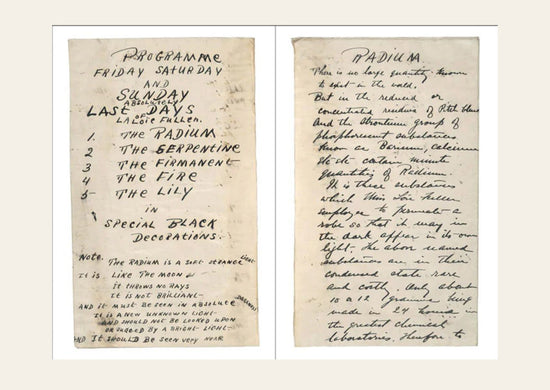 PROGRAMME
FRIDAY SATURDAY
AND
SUNDAY
ABSOLUTELY
LAST DAYS
OF
LA LOIE FULLER.
1. THE RADIUM
2 THE SERPENTINE
3 THE FIRMAMENT
4 THE FIRE
5 THE LILY
IN
SPECIAL BLACK
DECORATIONS.
NOTE. THE RADIUM IS A SOFT STRANGE LIGHT-
IT IS LIKE THE MOON
IT THROWS NO RAYS
IT IS NOT BRILLIANT-
AND IT MUST BE SEEN IN ABSOLUTE DARKNESS
IT IS A NEW UNKNOWN LIGHT-
AND SHOULD NOT BE LOOKED UPON
OR JUDGED BY A BRIGHT LIGHT-
AND IT SHOULD BE SEEN VERY NEAR
RADIUM
There is no large quantity known
to exist in the world.
But in the reduced or
concentrated residues of Pitch blend
And the Strontium group of
phosphorescent substances
Know as Barium, calcium
etc etc certain minute
quantities of Radium.
It is these substances
which Miss Loïe Fuller
employes to permeate a
robe so that it may in
the dark appear in its own
light- The above named
substances are in their
condensed state rare
and costly. Only about
10 a 12 grammes being
made in 24 hours in
the greatest chemical
laboratories, therefore to